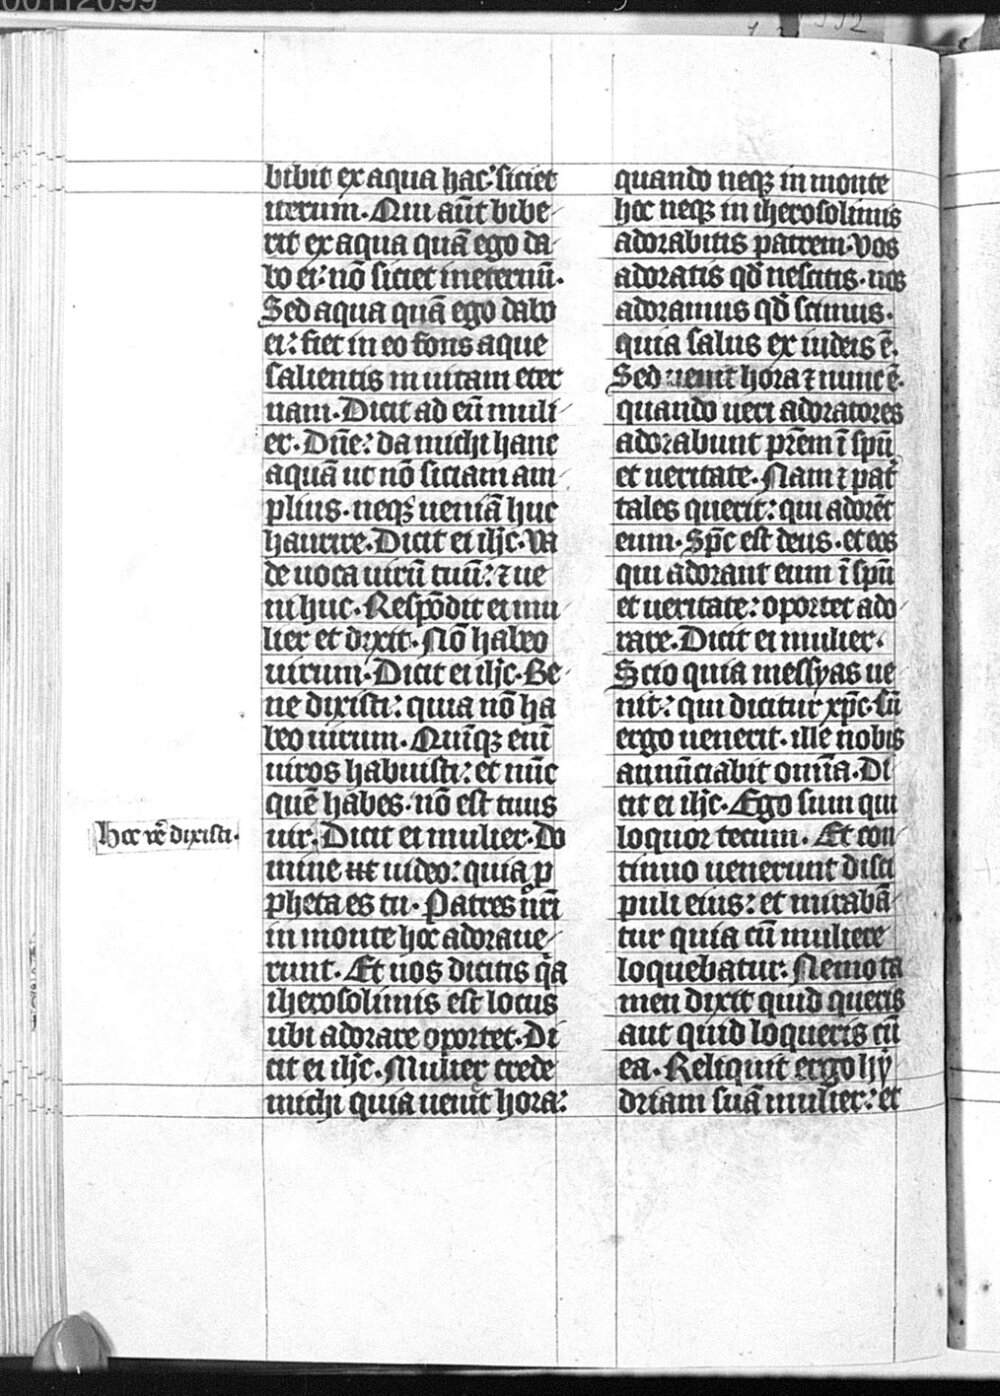 bibit ex aqua hac: siciet
iterum. Qui aūt bibe
rit ex aqua quā ego da
bo ei: nō siciet ineternū.
Sed aqua quā ego dabo
ei: fiet in eo fons aque
salientis in uitam eter
nam. Dicit ad eū muli
er. Dn̄e: da michi hanc
aquā ut nō siciam am
plius. neqꝫ ueniā huc
haurire. Dicit ei ih̄c. Va
de uoca uirū tuū: ⁊ ue
ni huc. Respōdit ei mu
lier et dixit. Nō habeo
uirum. Dicit ei ih̄c. Be
ne dixisti: quia nō ha
beo uirum. Quinqꝫ enī
uiros habuisti: et nūc
quē habes. nō est tuus
hoc ue᷑ dixisti.
uir. Dicit ei mulier. Do
mine uideo: quia ꝓ
pheta es tu. Patres nr̄i
in monte hoc adoraue
runt. Et uos dicitis qͣa
iherosolimis est locus
ubi adorare oportet. Di
cit ei ih̄c. Mulier crede
michi quia uenit hora:
quando neqꝫ in monte
hoc neqꝫ in iherosolimis
adorabitis patrem. Vos
adoratis qd̄ nescitis. nos
adoramus qd̄ scimus.
quia salus ex iudeis ē.
Sed uenit hora ⁊ nunc ē.
quando ueri adoratores
adorabunt pr̄em ī sp̄u
et ueritate. Nam ⁊ pat᷑
tales querit: qui adorēt
eum. Sp̄c est deus. et eos
qui adorant eum ī sp̄u
et ueritate: oportet ado
rare. Dicit ei mulier.
Scio quia messyas ue
nit: qui dicitur xp̄c. cū
ergo uenerit. ille nobis
annūciabit omīa. Di
cit ei ih̄c. Ego sum qui
loquor tecum. Et con
tinuo uenerunt disci
puli eius: et mirabā
tur quia cū muliere
loquebatur. Nemo ta
men dixit quid queris
aut quid loqueris cū
ea. Reliquit ergo hy
driam suā mulier: et